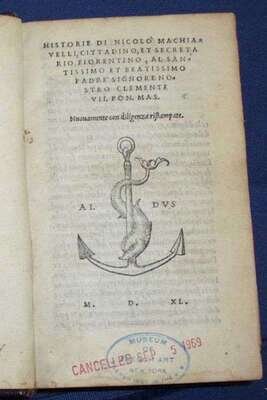 HISTORIE DI NICOLO MACHIA
VELLI, CITTADINO, ET SECRETA
RIO FIORENTINO, AL SAN-
TISSIMO ET BEATISSIMO
PADRE SIGNORE NO-
STRO CLEMENTE
VII. PON. MAS.
Nuouamente con diligenza ristampate.
AL DVS
M. D. XL.
MUSEUM
ART
NEW YORK
CANCELLED SEP 5 1969